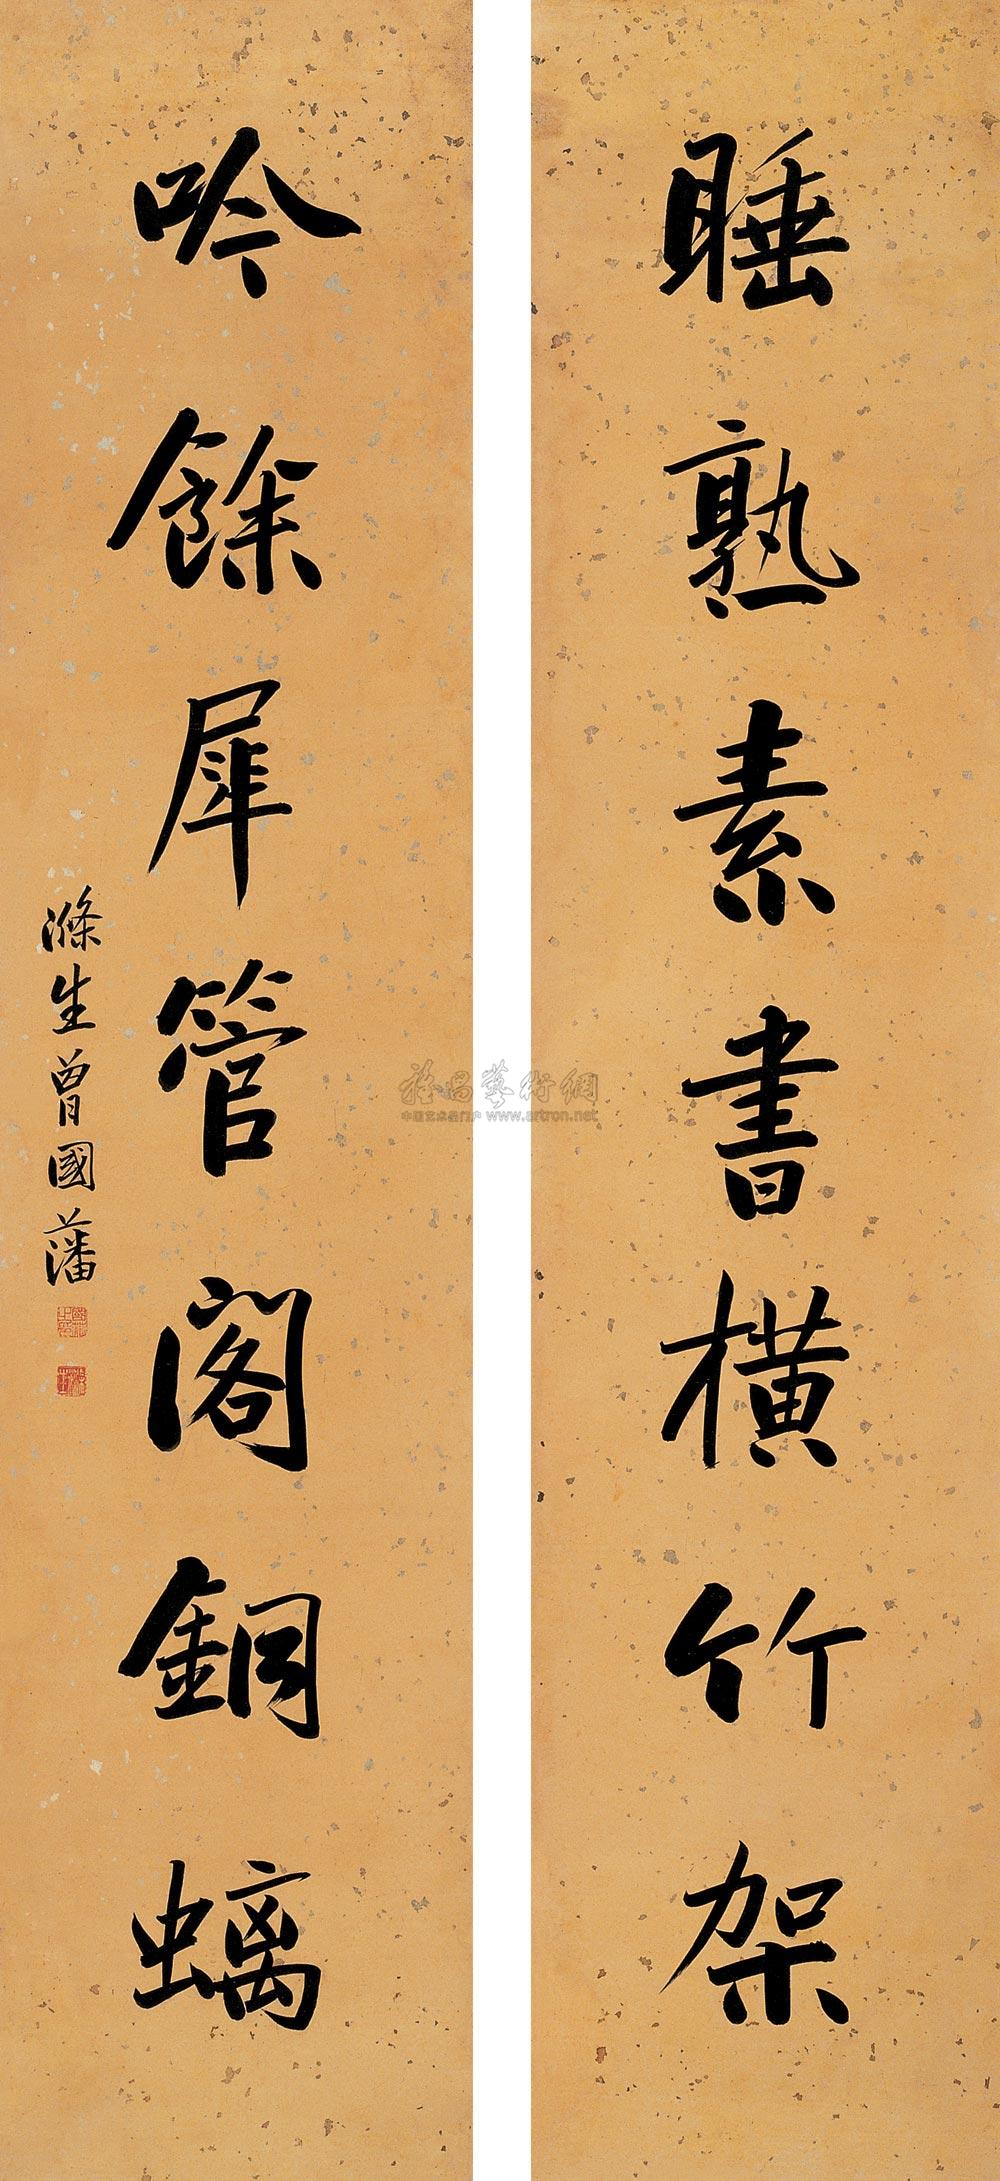 睡熟素書橫竹架
吟餘犀管閣銅螭
滌生曾國藩
雅昌藝術網
中国艺术品门户 www.artron.net